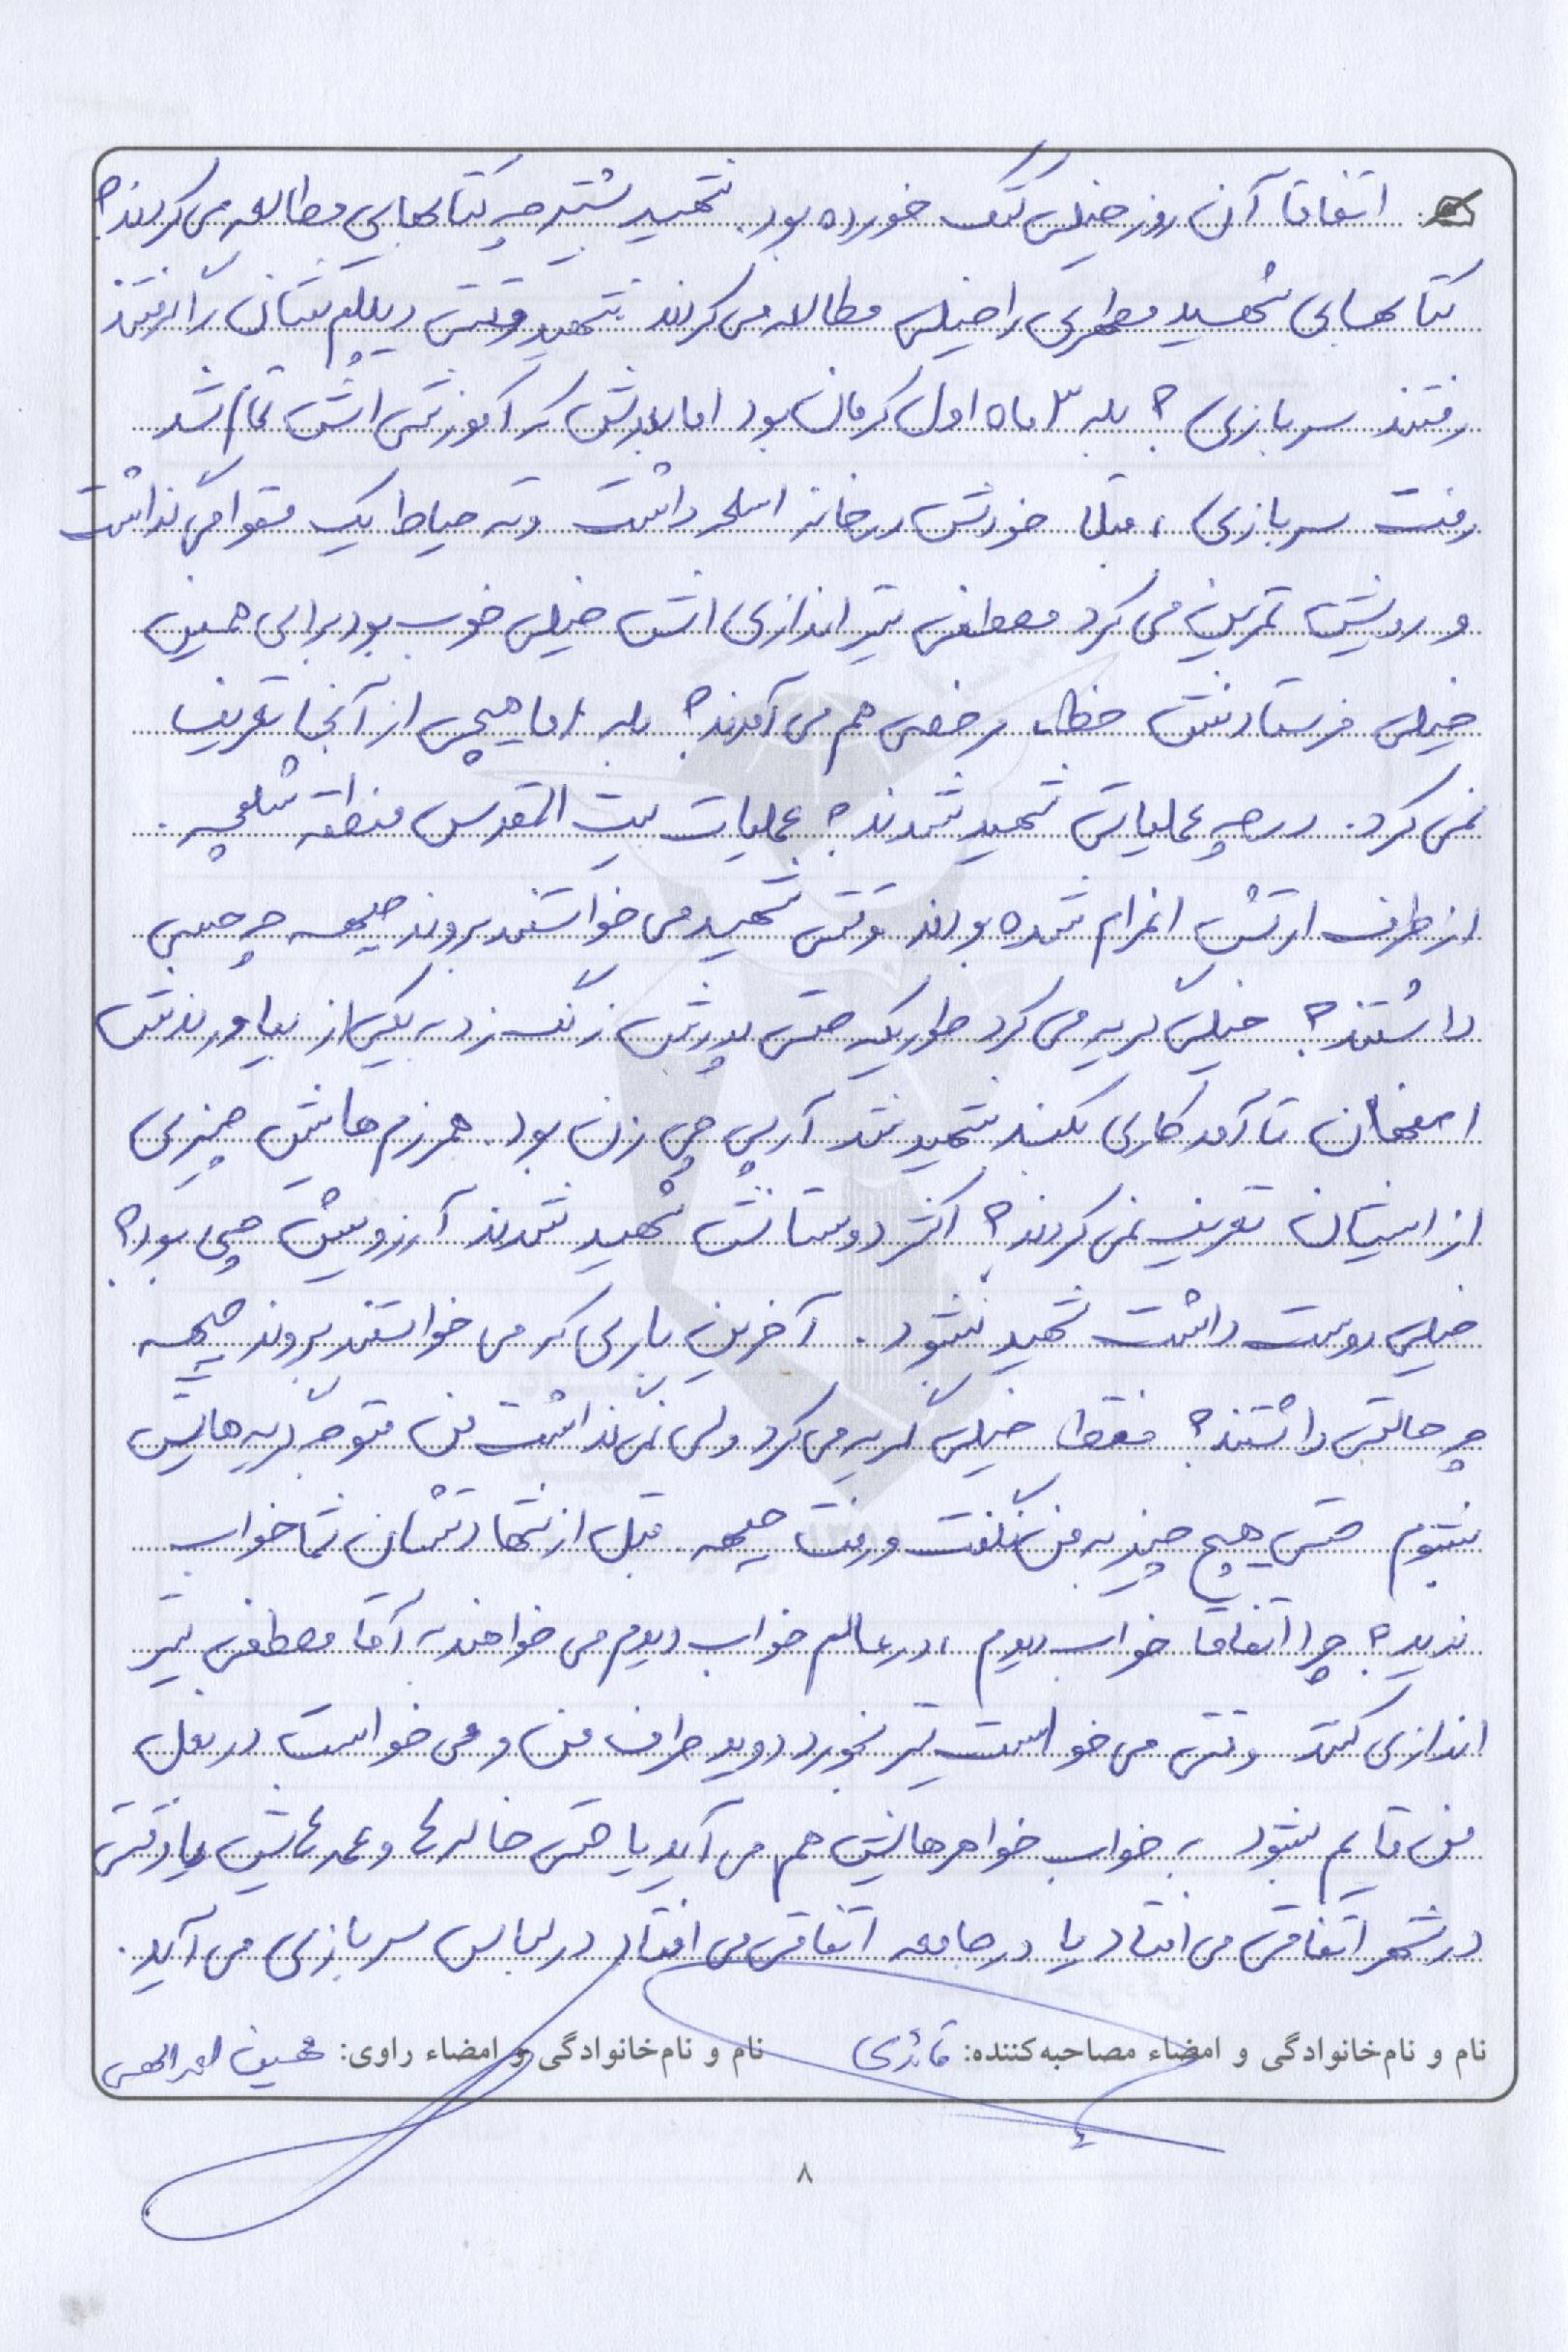 اتفاقاً آن روز خیلی کتک خورده بود. شهید بیشتر چه کتابهایی مطالعه می کردند؟
کتابهای شهید مطهری را خیلی مطالعه می کردند شهید وقتی دیپلم شان را گرفتند
رفتند سربازی؟ بله ۳ ماه اول کرمان بود اما بعدش که آموزشی اش تمام شد
رفت سربازی، قبلاً خودش در خانه اسلحه داشت و ته حیاط یک مقوا می گذاشت
و رویش تمرین می کرد مصطفی تیراندازی اش خیلی خوب بود برای همین
خیلی فرستادنش خط، مرخصی هم می آمدند؟ بله اما هیچی از آنجا تعریف
نمی کرد. در چه عملیاتی شهید شدند؟ عملیات بیت المقدس منطقه شلمچه.
از طرف ارتش اعزام شده بودند وقتی شهید می خواستند بروند جبهه چه حسی
داشتند؟ خیلی گریه می کرد طوریکه حتی پدرش زنگ زد به یکی از بیاورندش
اصفهان تا آمد کاری بکند شهید شد آرپی جی زن بود. همرزم هایش چیزی
از ایشان تعریف نمی کردند؟ اکثر دوستانش شهید شدند آرزویش چی بود؟
خیلی دوست داشت شهید بشود. آخرین باری که می خواستند بروند جبهه
چه حالتی داشتند؟ فقط خیلی گریه می کرد ولی نمی گذاشت من متوجه گریه هایش
بشوم حتی هیچ چیز به من نگفت و رفت جبهه. قبل از شهادتشان شما خواب
ندید؟ چرا اتفاقاً خواب دیدم، در عالم خواب دیدم می خواهند به آقا مصطفی تیر
اندازی کنند وقتی می خواست تیر بخورد دوید طرف من و می خواست در بغل
من قایم بشود به خواب خواهرهایش هم می آید یا حتی خاله ها و عمه هایش یا وقتی
در شهر اتفاقی می افتاد یا در جامعه اتفاقی می افتاد در لباس سربازی می آید.
نام و نام‌خانوادگی و امضاء مصاحبه‌کننده: قائدی نام و نام‌خانوادگی و امضاء راوی:
۸